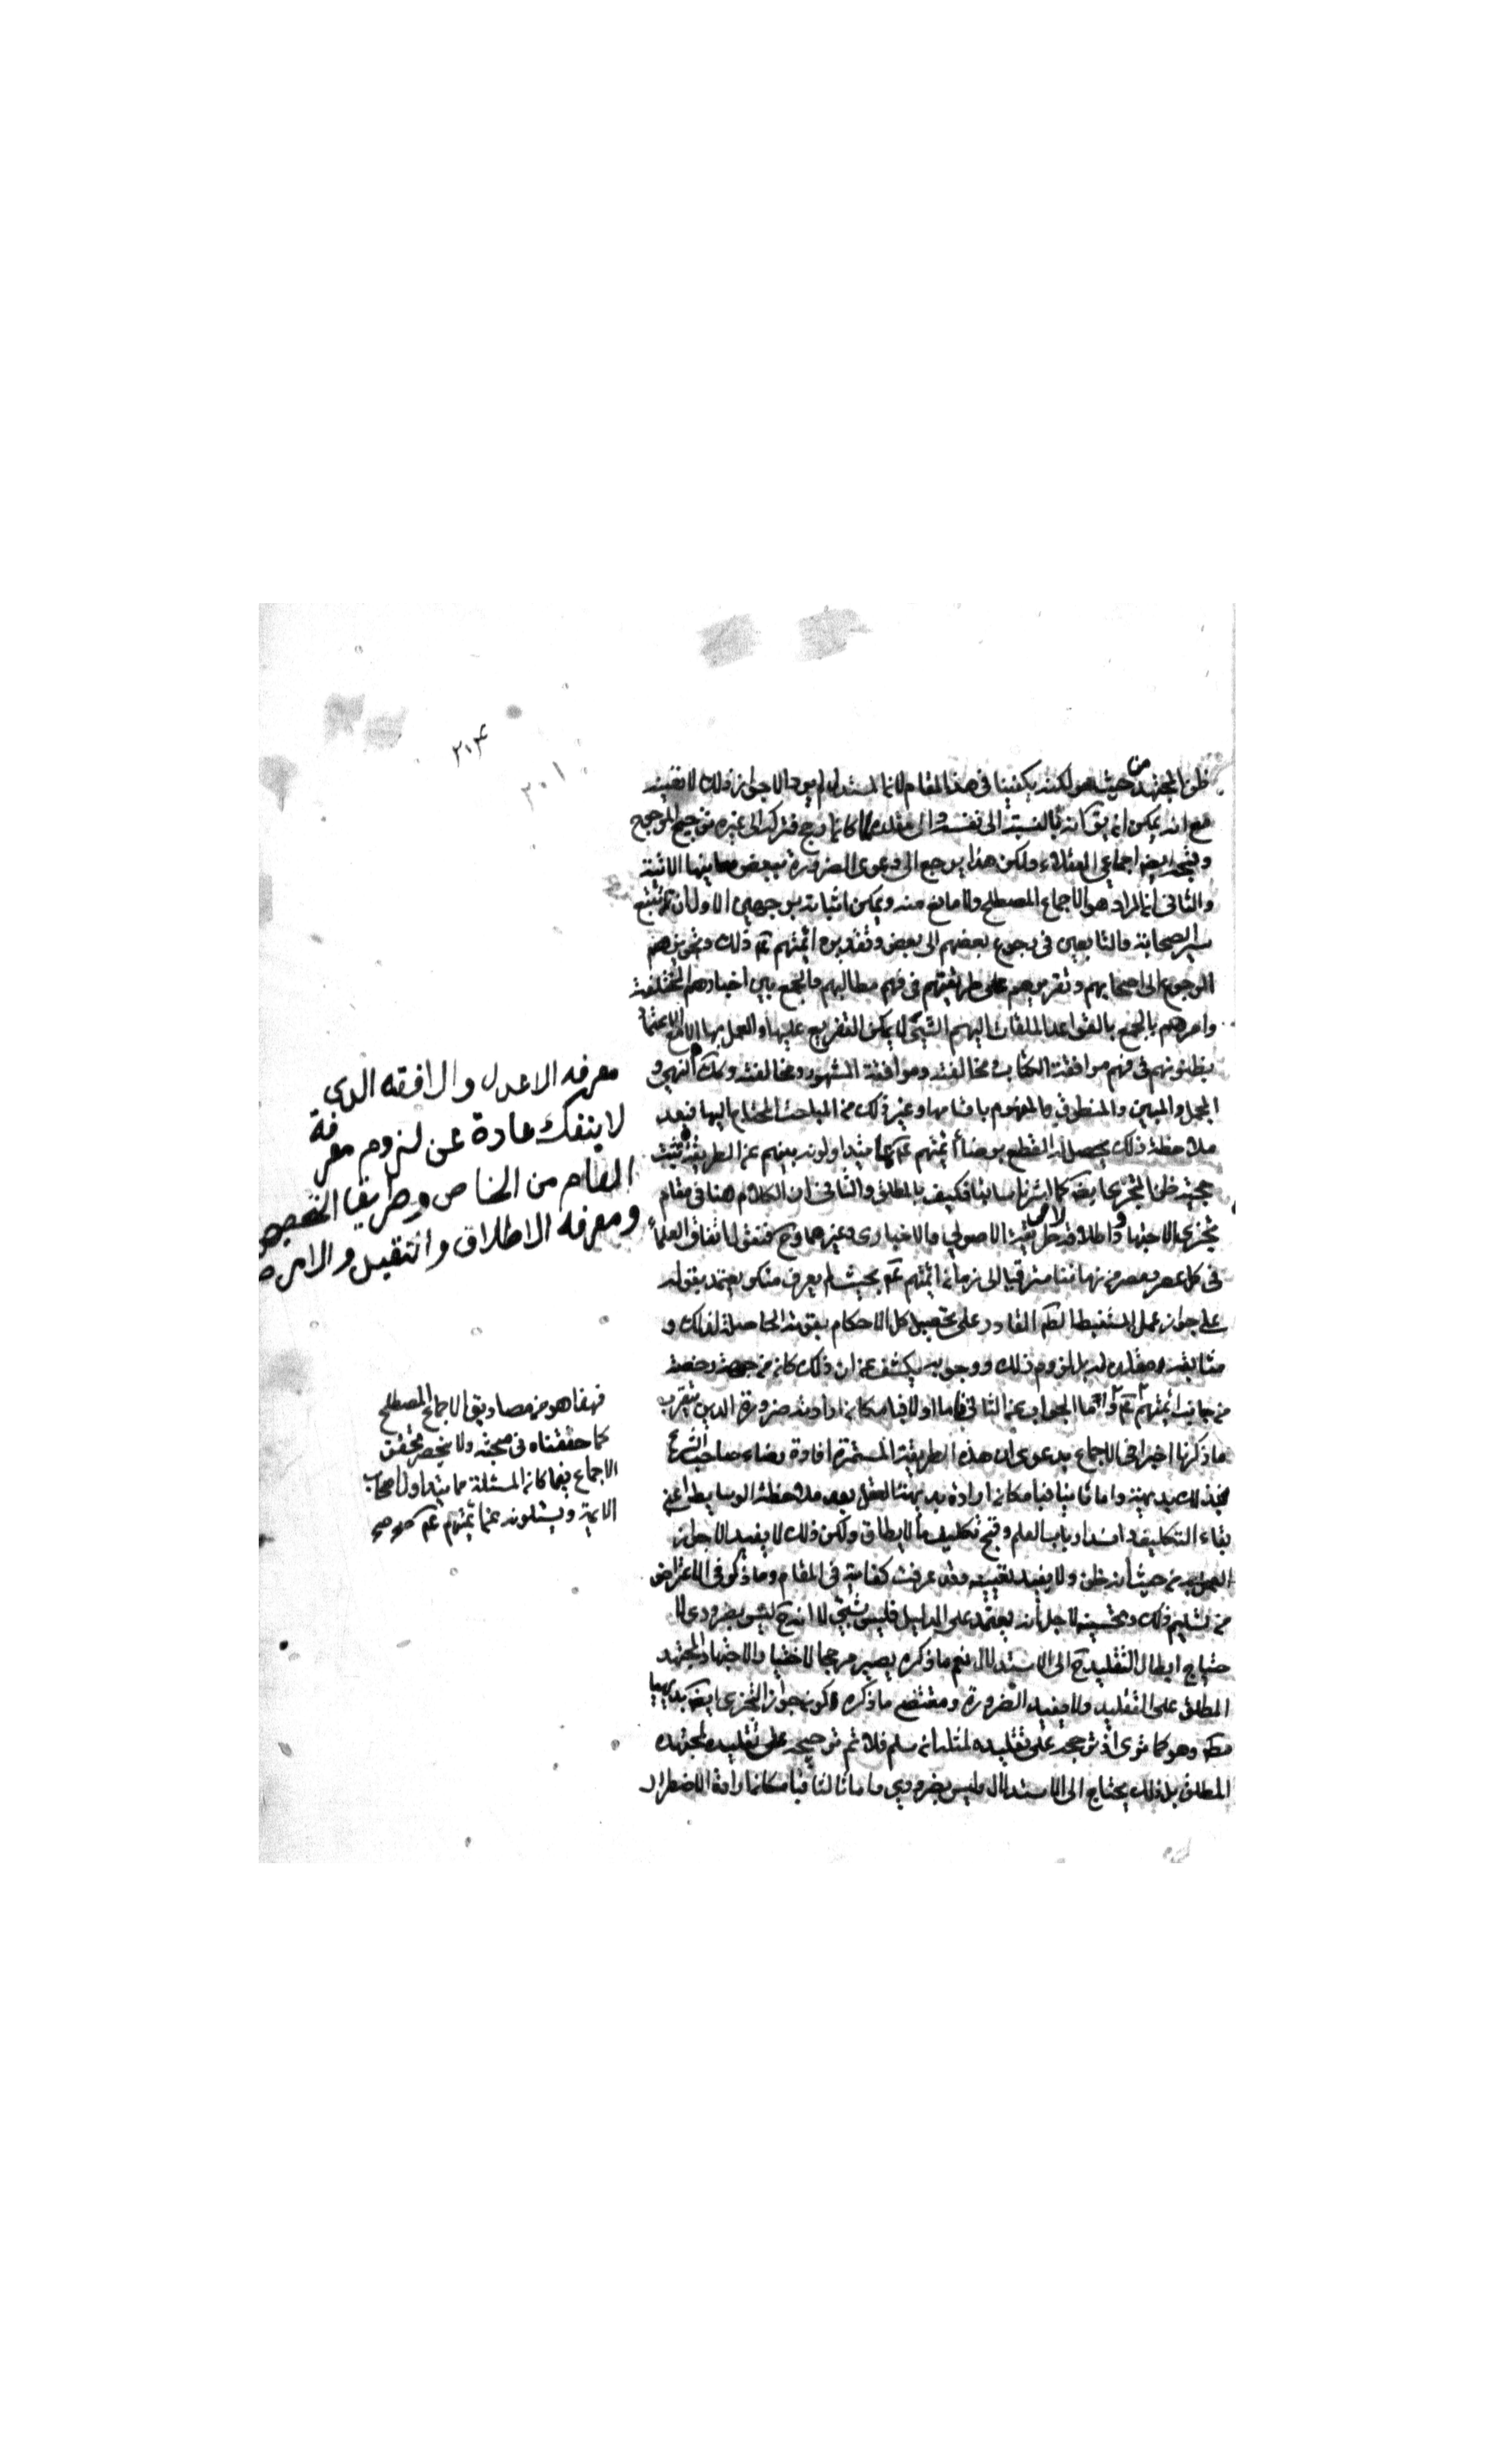 ٢٠٤
٢٠١
ظن المجتهد من حيث هو لكنه يكفينا في هذا المقام لان المستدل لم يرد الا جواز ذلك لا تعينه
مع انه يمكن ان يق انه بالنسبة الى نفسه والى مقلده كانه ارجح فتركه الى غيره ترجيح المرجوح
اجماعي العقلاء ولكن هذا يرجع الى دعوى الضرورة ببعض معانيها الاتية
والثاني ان المراد هو الاجماع المصطلح ولا مانع منه ويمكن اثباته بوجهين الاول ان تتبع
سير الصحابة والتابعين في رجوع بعضهم الى بعض وتقرير ائمتهم ع ذلك وتجويزهم
الرجوع الى اصحابهم وتقريرهم على طريقتهم في فهم مطالبهم والجمع بين اخبارهم المختلفة
وامرهم بالجمع بالقواعد الملقاة اليهم التي لا يمكن التفريع عليها والعمل بها الا مع الاعتماد
بظنونهم في فهم موافقة الكتاب ومخالفته وموافقة المشهور ومخالفته وكك النهي و
المجمل والمبين والمنطوق والمفهوم باقسامها وغير ذلك من المباحث المحتاج اليها فبعد
ملاحظة ذلك يحصل القطع برضا ائمتهم ع بما يتداولونه بينهم من الطريقة فثبت
حجية ظن المتجزي ايضا كما اشرنا سابقا فكيف بالمطلق والثاني ان الكلام هنا في مقام
تجزي الاجتهاد واطلاقه لا في الاصولي والاخباري وغيرهما وح فنقول اتفاق العلماء
في كل عصر ومصر من زماننا مترقيا الى زمان ائمتهم ع بحيث لم يعرف منكر يعتمد بقوله
على جواز عمل المستنبط القادر على تحصيل كل الاحكام بقوته الحاصلة لذلك و
متابعة مقلده له بل لزوم ذلك ووجوبه يكشف عن ان ذلك كان من جهة رخصة
من جانب ائمتهم ع واما الجواب عن الثاني فاما اولا فبامكان ارادته ضرورة الدين بتقريب
ما ذكرنا اخيرا في الاجماع بدعوى ان هذه الطريقة المستمرة افادة رضاء صاحب الشرع
بذلك بديهية واما ثانيا فبامكان ارادة بديهة العقل بعد ملاحظة الوسايط اعني
بقاء التكليف وانسداد باب العلم وقبح تكليف ما لا يطاق ولكن ذلك لا يفيد الا جواز
العمل به من حيث انه ظن ولا يفيد تعيينه وقد عرفت كفايته في المقام وما ذكر في الاعتراض
من تسليم ذلك وتحسينه لاجل انه يعتمد على الدليل فليس بشيء لانه ح ليس بضروري لا
حتياج ابطال التقليد ح الى الاستدلال نعم ما ذكره يصير مرجحا لاختيار الاجتهاد للمجتهد
المطلق على التقليد ولا يفيد الضرورة ومقتضى ما ذكره كون جواز التجزي ايضا بديهيا
وهو كما ترى اذ ترجحه على تقليده لمثله ان سلم فلا نم ترجيحه على تقليده لمجتهده
المطلق بل ذلك يحتاج الى الاستدلال وليس بضروري واما ثالثا فبامكان ارادة الاضطرار
معرفة الاعدل والافقه الذي
لا ينفك عادة عن لزوم معرفة
العام من الخاص وطريقا التخصيص
ومعرفة الاطلاق والتقييد والامر
فهذا هو من مصاديق الاجماع المصطلح
كما حققناه في مبحثه ولا ينحصر تحقق
الاجماع فيما كان المسئلة مما يتداول اصحاب
الائمة ويسئلونه عن ائمتهم ع